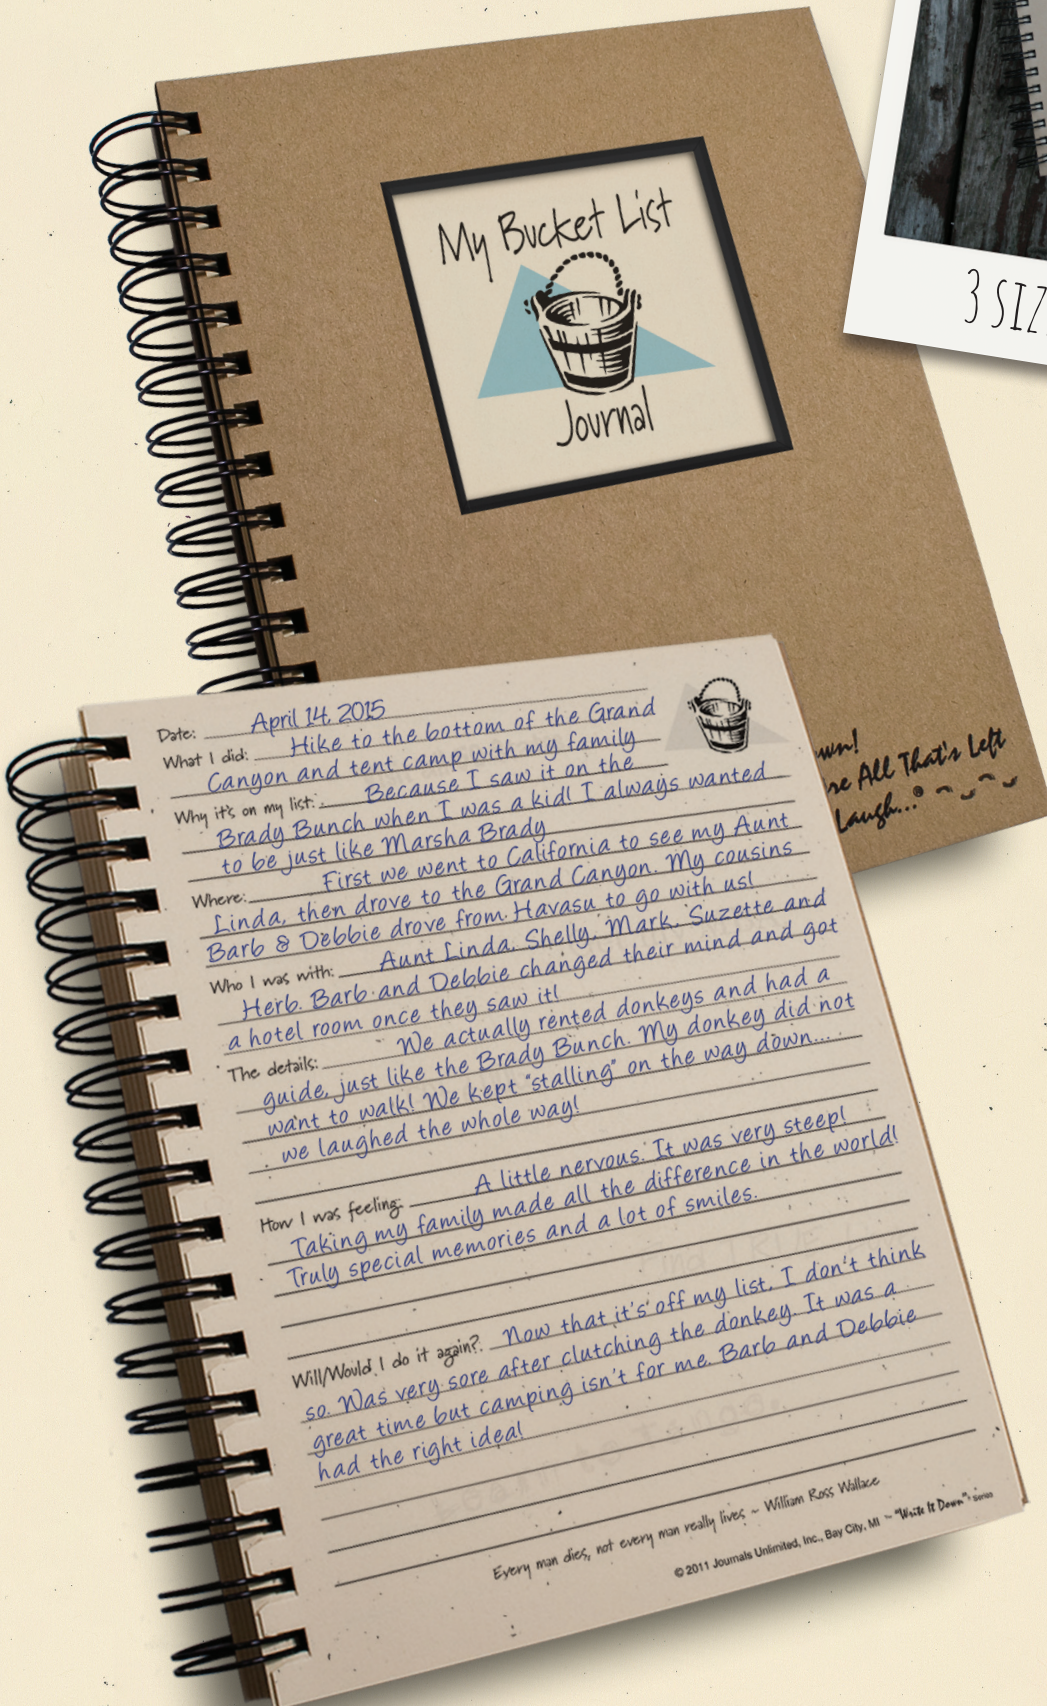 My Bucket List
Journal
3 SIZ
wn!
re All That's Left
Laugh...®
Date: April 14, 2015
What I did: Hike to the bottom of the Grand
Canyon and tent camp with my family
Why it's on my list: Because I saw it on the
Brady Bunch when I was a kid! I always wanted
to be just like Marsha Brady
Where: First we went to California to see my Aunt
Linda, then drove to the Grand Canyon. My cousins
Barb & Debbie drove from Havasu to go with us!
Who I was with: Aunt Linda, Shelly, Mark, Suzette and
Herb. Barb and Debbie changed their mind and got
a hotel room once they saw it!
The details: We actually rented donkeys and had a
guide, just like the Brady Bunch. My donkey did not
want to walk! We kept "stalling" on the way down...
we laughed the whole way!
How I was feeling: A little nervous. It was very steep!
Taking my family made all the difference in the world!
Truly special memories and a lot of smiles.
Will/Would I do it again?: Now that it's off my list, I don't think
so. Was very sore after clutching the donkey. It was a
great time but camping isn't for me. Barb and Debbie
had the right idea!
Every man dies, not every man really lives ~ William Ross Wallace
© 2011 Journals Unlimited, Inc., Bay City, MI ~ "Write It Down"® Series